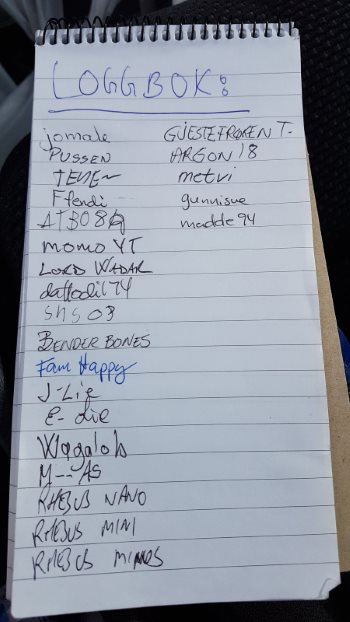 LOGGBOK:
jomale
PUSSEN
Ffendi
MOMO YT
LORD WADAR
daffodil74
SHS 03
BENDER BONES
Fam Happy
J-Lie
E-die
Wagalob
M--AS
RHEBUS NANO
RHEBUS MINI
RHEBUS MINUS
GJESTEFRØKEN T.
ARGON18
metvi
gunnisue
madde94